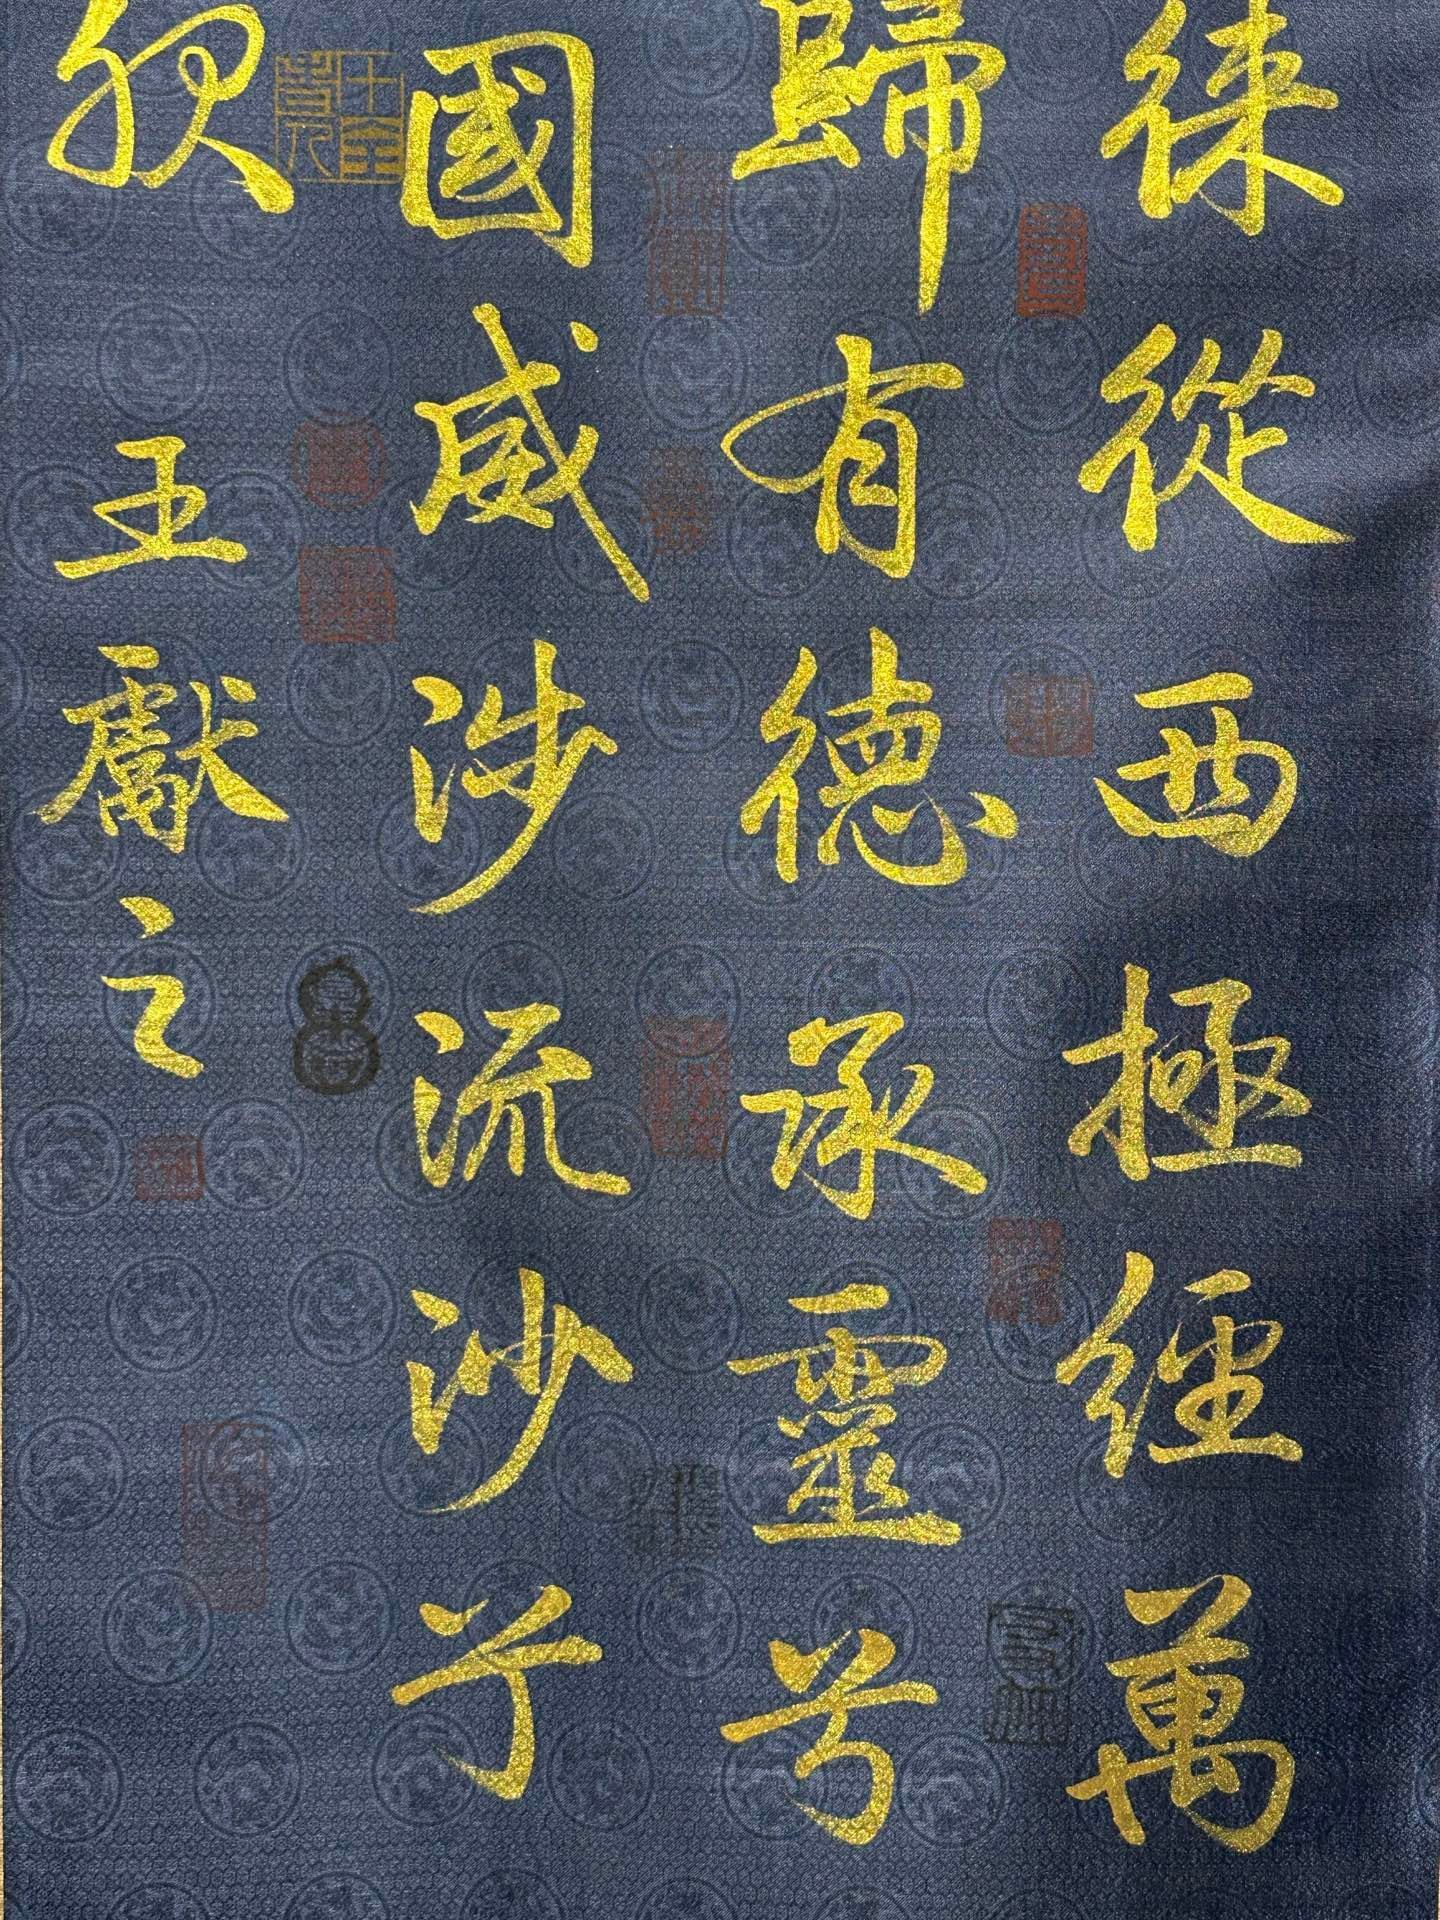 徠從西極經萬
歸有德承靈兮
國威涉流沙兮
服
王獻之